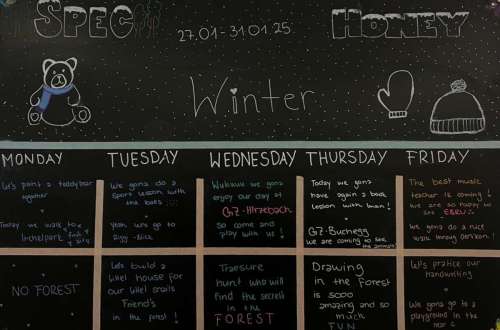 SPEC HONEY
27.01-31.01.25
Winter
MONDAY TUESDAY WEDNESDAY THURSDAY FRIDAY
Let's paint a teddy bear
together
Today we walk to
Irchelpark
We gona do a
Sport lesson with
the kids
Yeah we go to
enjoy our day at
so come and
play with us!
Today we gona
have again a book
lesson with
G7-Buchegg
we are coming to see
the animals
The best music
teacher is coming!
We are so happy to
see EBRU
We gona do a nice
walk through Oerlikon!
NO FOREST
Let's build a
house for
our
Friend's
in the forest!
Treasure
hunt who will
find the secret
in the
FOREST
Drawing
in the forest
is sooo
amazing and so
much
FUN
Let's pratice our
handwriting
We gona go to a
playground in the